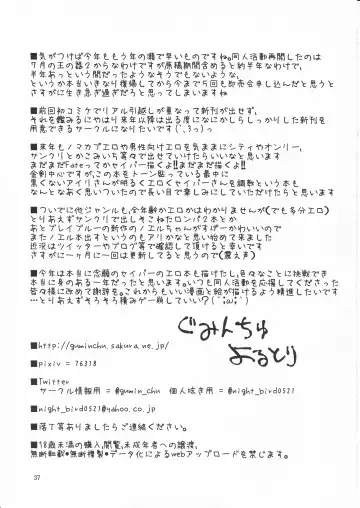 ■気がつけば今年ももう年の瀬で早いものですね。同人活動再開したのは
7月の王の器2からなわけですが原稿期間含めると約半年なわけで、
半年あっという間だったようなそうでもないような、
というか本当いきなり復帰してから今まで5回も即売会申し込んだと思うと
さすがに生き急ぎ過ぎだろうと思ってしまいますね
■前回初コミケでリアル引越しが重なって新刊が出せず、
それを鑑みるにやはり来年以降は出る度になにかしらしっかりした新刊を
用意できるサークルになりたいです(´,3っ)っ
■来年もノマカプエロや男性向けエロを気ままにシティやオンリー、
サンクリとかこみいち等々で出せていけたらいいなと思います
まだまだFateってかセイバー描くよ!!まだまだ描くよ!!
金剣中心ですが、この本をトーン貼っている最中に
黒くないアイリさんが明るくエロくセイバーさんを調教という本も
なんとなあく思いついたので長い目で楽しみにしていただけたらと思います
■ついでに他ジャンルも、全年齢かエロかはわかりませんが(でも多分エロ)
とりあえずサンクリで出しそこねたロンパ2本とか
あとブレイブルーの新作のノエルちゃんがすばーかわいいので
またノエル本出すというのもアリかなと思い始めて来ました
近況はツイッターやブログ等で確認して頂けると幸いです
さすがに一ヶ月に一回は更新してると思うので(震え声)
■今年は本当に念願のセイバーのエロ本も描けたし、色々なことに挑戦でき
本当に身のある一年だったと思います。いつも同人活動を応援してくださった
皆々様に改めて謝辞を。これからもいい漫画と絵が描けるよう精進したいです
…とりあえずそろそろ積みゲー崩していい?(´;ω;`)
ぐみんちゅ
よるとり
■http://guminchu.sakura.ne.jp/
■pixiv = 76318
■Twitter
サークル情報用 = @gumin_chu 個人呟き用 = @night_bird0521
■night_bird0521@yahoo.co.jp
■落丁等ありましたらご連絡ください。
■18歳未満の購入,閲覧,未成年者への譲渡,
無断転載・無断複製・データ化によるwebアップロードを禁じます。
37